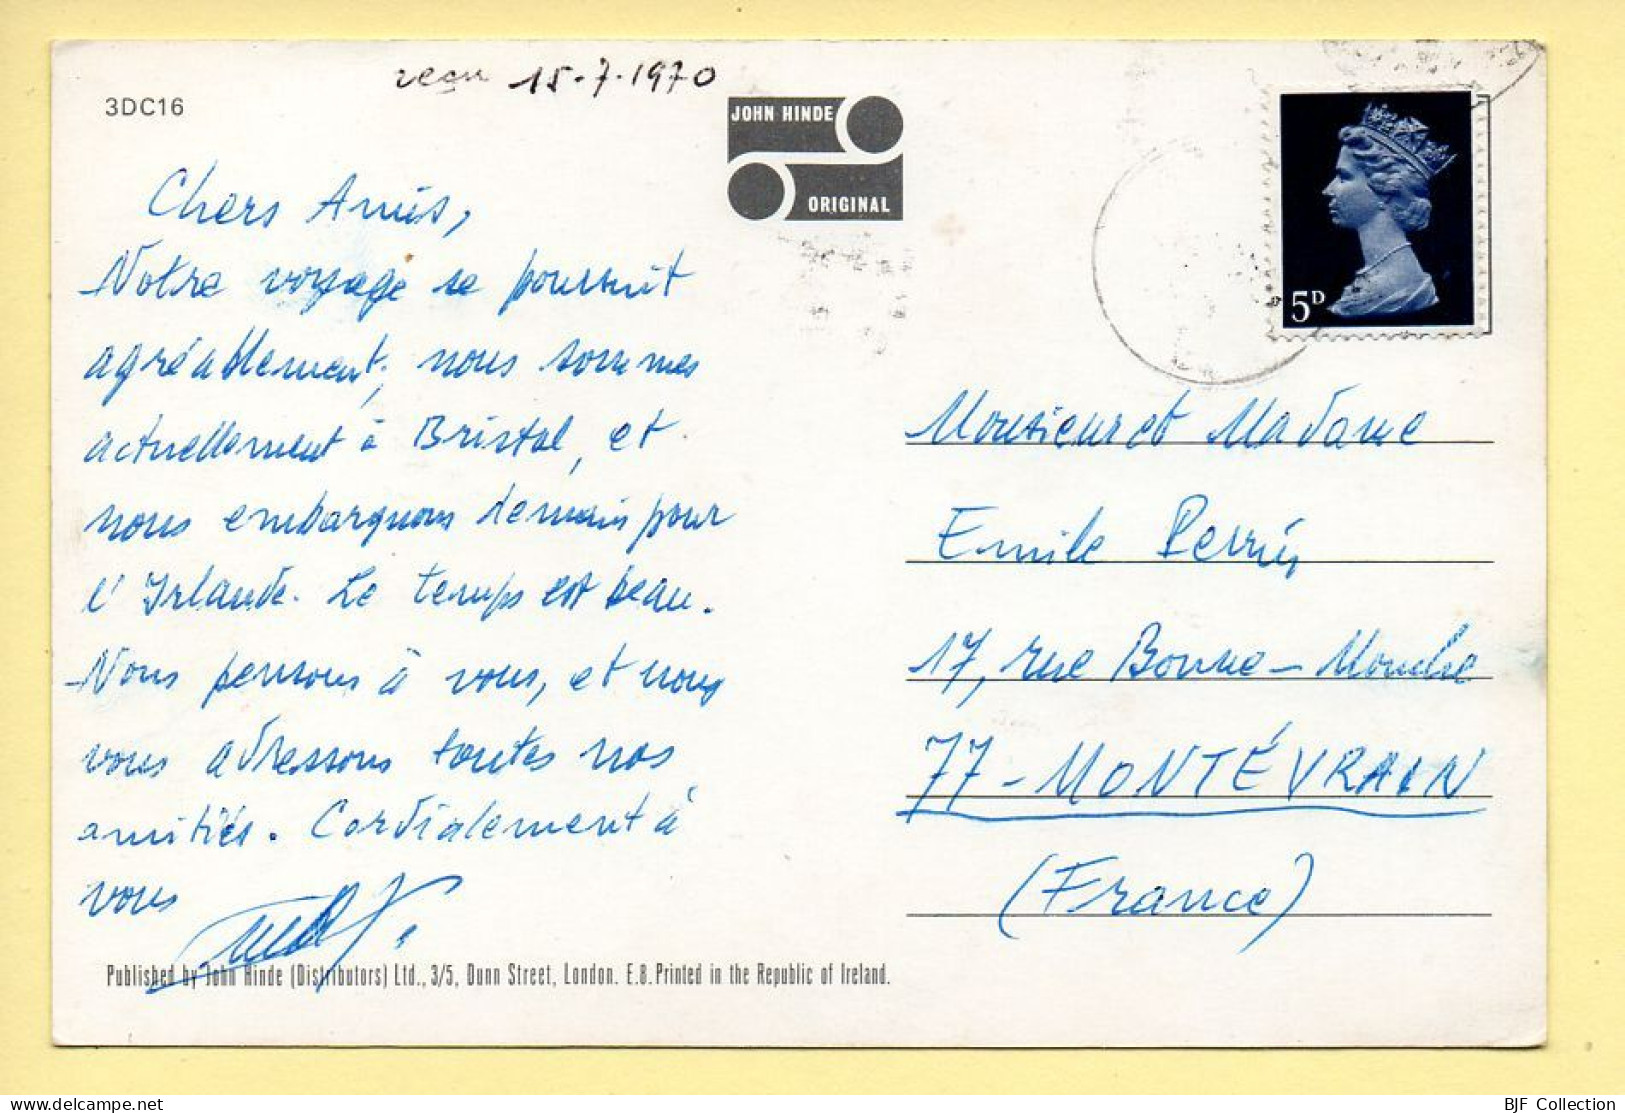 recu 15-7-1970
3DC16
JOHN HINDE
ORIGINAL
5D
Chers Amis,
Notre voyage se poursuit
agréablement, nous sommes
actuellement à Bristol, et
nous embarquons demain pour
l'Irlande. Le temps est beau.
Nous pensons à vous, et nous
vous adressons toutes nos
amitiés. Cordialement à
vous
Monsieur et Madame
Emile Perrin
17, rue Bonne-Mouche
77-MONTÉVRAIN
(France)
Published by John Hinde (Distributors) Ltd., 3/5, Dunn Street, London. E.8. Printed in the Republic of Ireland.
delcampe.net
BJF Collection